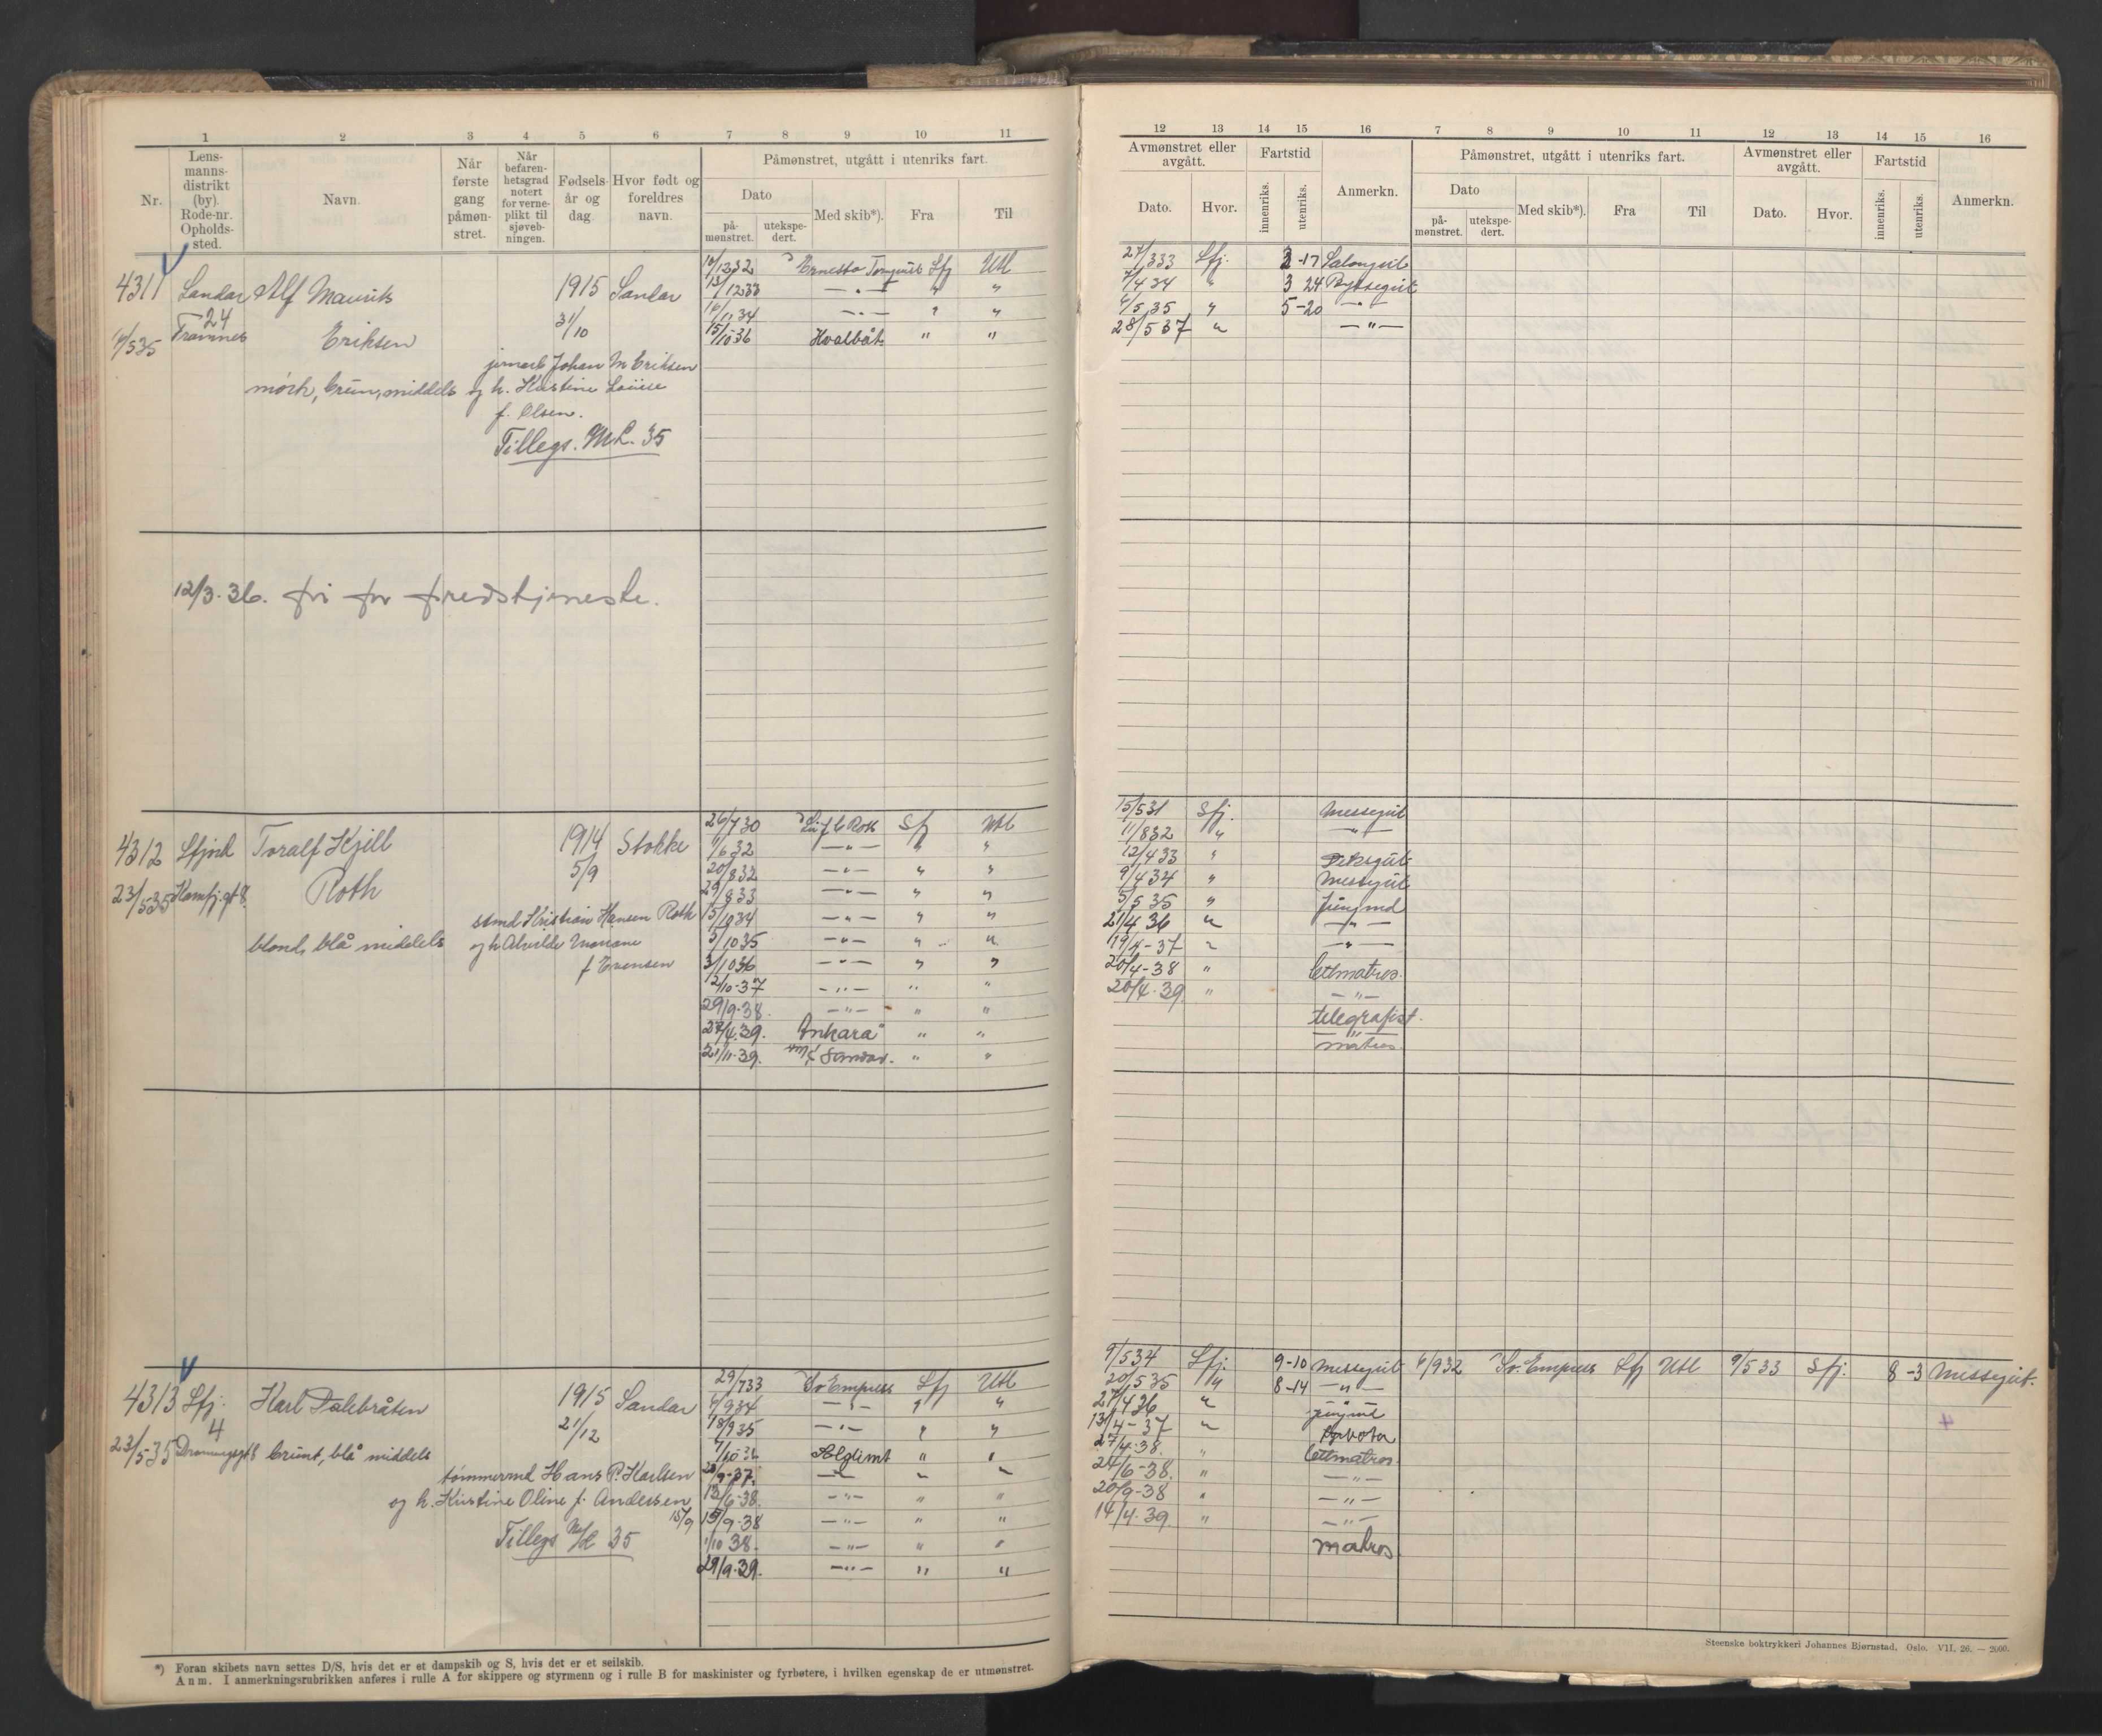 1 2 3 4 5 6 7 8 9 10 11
Nr.
Lens-
manns-
distrikt
(by).
Rode-nr.
Opholds-
sted.
Navn.
Når
første
gang
påmøn-
stret.
Når
befaren-
hetsgrad
notert
for verne-
plikt til
sjøveb-
ningen.
Fødsels-
år og
dag.
Hvor født og
foreldres
navn.
Påmønstret, utgått i utenriks fart.
Dato
på-
mønstret.
utekspe-
dert.
Med skib*).
Fra
Til
4311 Sandar Alf Maurits 1915 Sandar
24 31/10
Framnes Eriksen
4/5 35
jernarb Johan M Eriksen
mørk, brun, middels og h. Kristine Louise
f. Olsen.
Tillegs. ML. 35
12/12 32 Ernesto Tornquist Sfj Utl
13/12 33 —"— " "
14/11 34 —"— " "
15/10 36 Hvalbåt " "
12/3. 36. fri for fredstjeneste.
4312 Sfjord Toralf Kjell 1914 Stokke
5/9
23/5 35 Kamfj.gt 8. Roth
stmd Kristian Hansen Roth
blond, blå middels og h Alvilde Mariane
f Evensen
26/7 30 Sir J C Ross Sfj Utl
1/6 32 —"— " "
20/8 32 —"— " "
29/8 33 —"— " "
15/10 34 —"— " "
3/10 35 —"— " "
3/10 36 —"— " "
12/10-37 —"— " "
29/9-38. —"— " "
24/4.39. Ankara " "
21/11-39. m/t Sandar. " "
4313 Sfj. Karl Dalebråten 1915 Sandar
4 21/12
23/5 35 brunt, blå middels
tømmermd Hans P. Karlsen
og h. Kristine Oline f. Andersen
Tillegs M/L 35
29/7 33 Sv. Empress Sfj Utl
6/9 34 —"— " "
18/9 35 —"— " "
7/10-36 Alglimt " "
20/9-37. —"— " "
13/6-38. —"— " "
15/9 15/9-38 —"— " "
1/10 38. —"— " "
29/9-39. —"— " "
*) Foran skibets navn settes D/S, hvis det er et dampskib og S, hvis det er et seilskib.
Anm. I anmerkningsrubrikken anføres i rulle A for skippere og styrmenn og i rulle B for maskinister og fyrbøtere, i hvilken egenskap de er utmønstret.
12 13 14 15 16 7 8 9 10 11 12 13 14 15 16
Avmønstret eller
avgått.
Dato.
Hvor.
Fartstid
innenriks.
utenriks.
Anmerkn.
Påmønstret, utgått i utenriks fart.
Dato
på-
mønstret.
utekspe-
dert.
Med skib*).
Fra
Til
Avmønstret eller
avgått.
Dato.
Hvor.
Fartstid
innenriks.
utenriks.
Anmerkn.
27/3 33 Sfj. 3-17 Salongut
7/4 34 " 3 24 Byssegut
6/5 35 " 5-20 —"—
28/5 37 " —"—
15/5 31 Sfj. Messegut
11/8 32 " —"—
12/4 33 " Deksgut
9/4 34 " Messegut
5/5 35 " jungmd
21/4 36 " —"—
19/4-37 " —"—
20/4-38 " lettmatros.
20/4.39 " —"—
telegrafist.
matros.
9/5 34 Sfj. 9-10 messegut 6/9 32 Sv. Empress Sfj Utl 9/5 33 Sfj. 8-3 Messegut.
20/5 35 " 8-14 —"—
27/4 36 " jungmd
4
13/4-37 "
27/4-38. " lettmatros.
24/6-38. " —"—
20/9-38 " —"—
14/4.39. " —"—
matros.
Steenske boktrykkeri Johannes Bjørnstad, Oslo. VII. 26. — 2000.